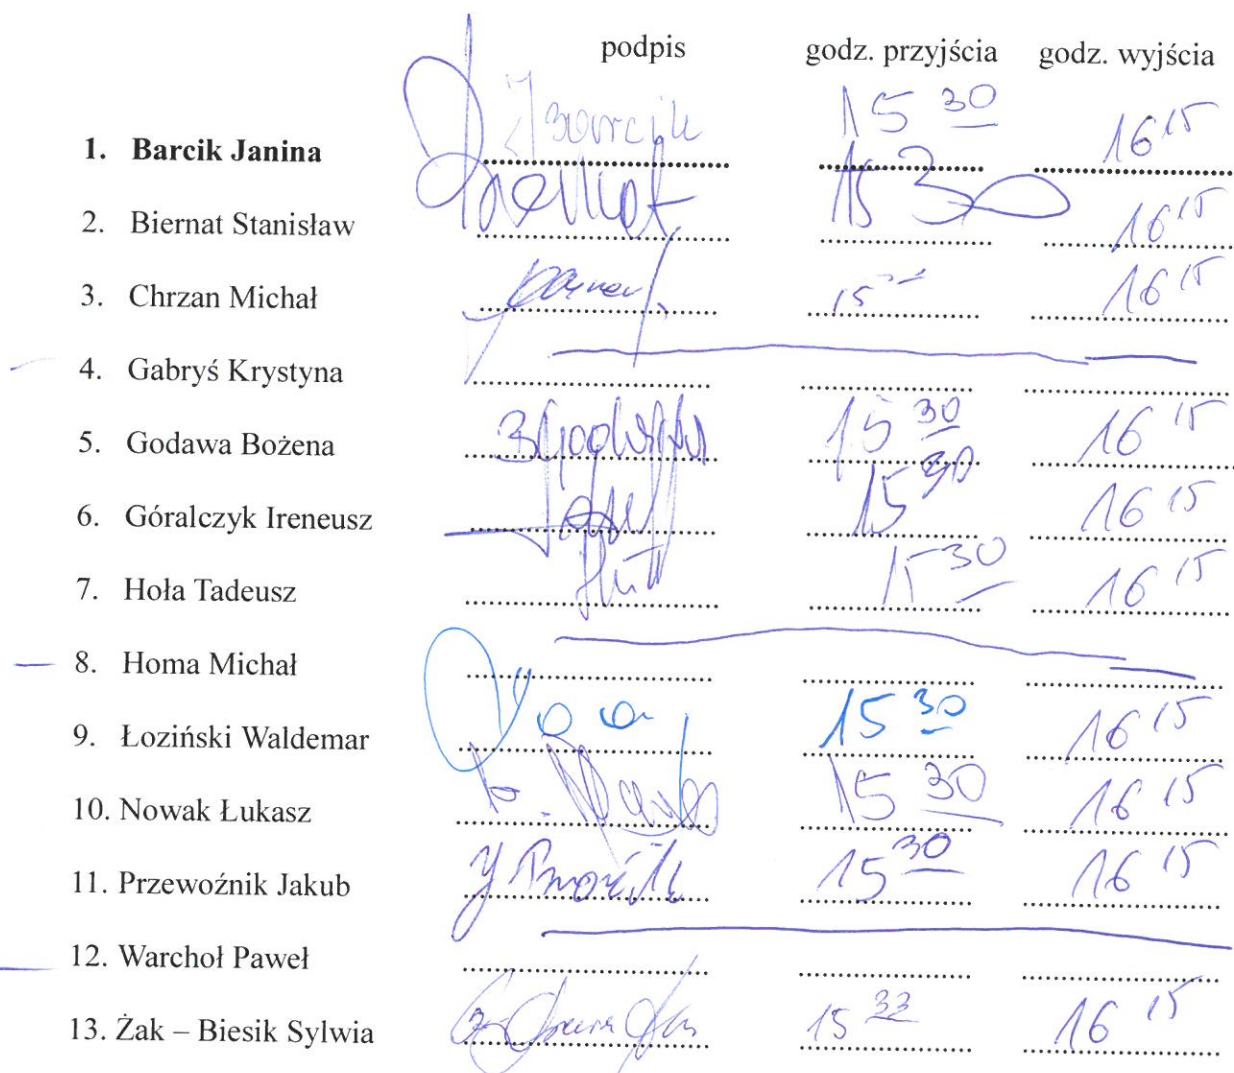 podpis godz. przyjścia godz. wyjścia
1. Barcik Janina 15 30 16 15
2. Biernat Stanisław 15 30 16 15
3. Chrzan Michał 15 16 15
4. Gabryś Krystyna
5. Godawa Bożena 15 30 16 15
6. Góralczyk Ireneusz 15 30 16 15
7. Hoła Tadeusz 15 30 16 15
8. Homa Michał
9. Łoziński Waldemar 15 30 16 15
10. Nowak Łukasz 15 30 16 15
11. Przewoźnik Jakub 15 30 16 15
12. Warchoł Paweł
13. Żak – Biesik Sylwia 15 33 16 15